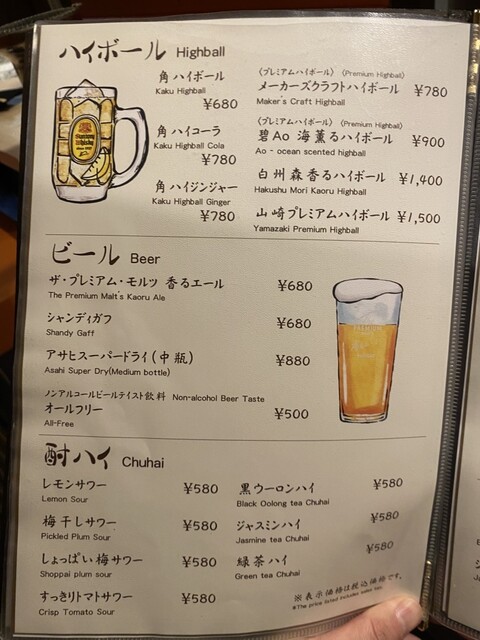 ハイボール Highball
角ハイボール
Kaku Highball
¥680
角ハイコーラ
Kaku Highball Cola
¥780
角ハイジンジャー
Kaku Highball Ginger
¥780
〈プレミアムハイボール〉 (Premium Highball)
メーカーズクラフトハイボール ¥780
Maker's Craft Highball
〈プレミアムハイボール〉 (Premium Highball)
碧Ao 海薫るハイボール ¥900
Ao - ocean scented highball
白州森香るハイボール ¥1,400
Hakushu Mori Kaoru Highball
山崎プレミアムハイボール ¥1,500
Yamazaki Premium Highball
ビール Beer
ザ・プレミアム・モルツ 香るエール ¥680
The Premium Malt's Kaoru Ale
シャンディガフ ¥680
Shandy Gaff
アサヒスーパードライ(中瓶) ¥880
Asahi Super Dry(Medium bottle)
ノンアルコールビールテイスト飲料 Non-alcohol Beer Taste
オールフリー ¥500
All-Free
酎ハイ Chuhai
レモンサワー ¥580
Lemon Sour
梅干しサワー ¥580
Pickled Plum Sour
しょっぱい梅サワー ¥580
Shoppai plum sour
すっきりトマトサワー ¥580
Crisp Tomato Sour
黒ウーロンハイ ¥580
Black Oolong tea Chuhai
ジャスミンハイ ¥580
Jasmine tea Chuhai
緑茶ハイ ¥580
Green tea Chuhai
※表示価格は税込価格です。
※The price listed includes sales tax.